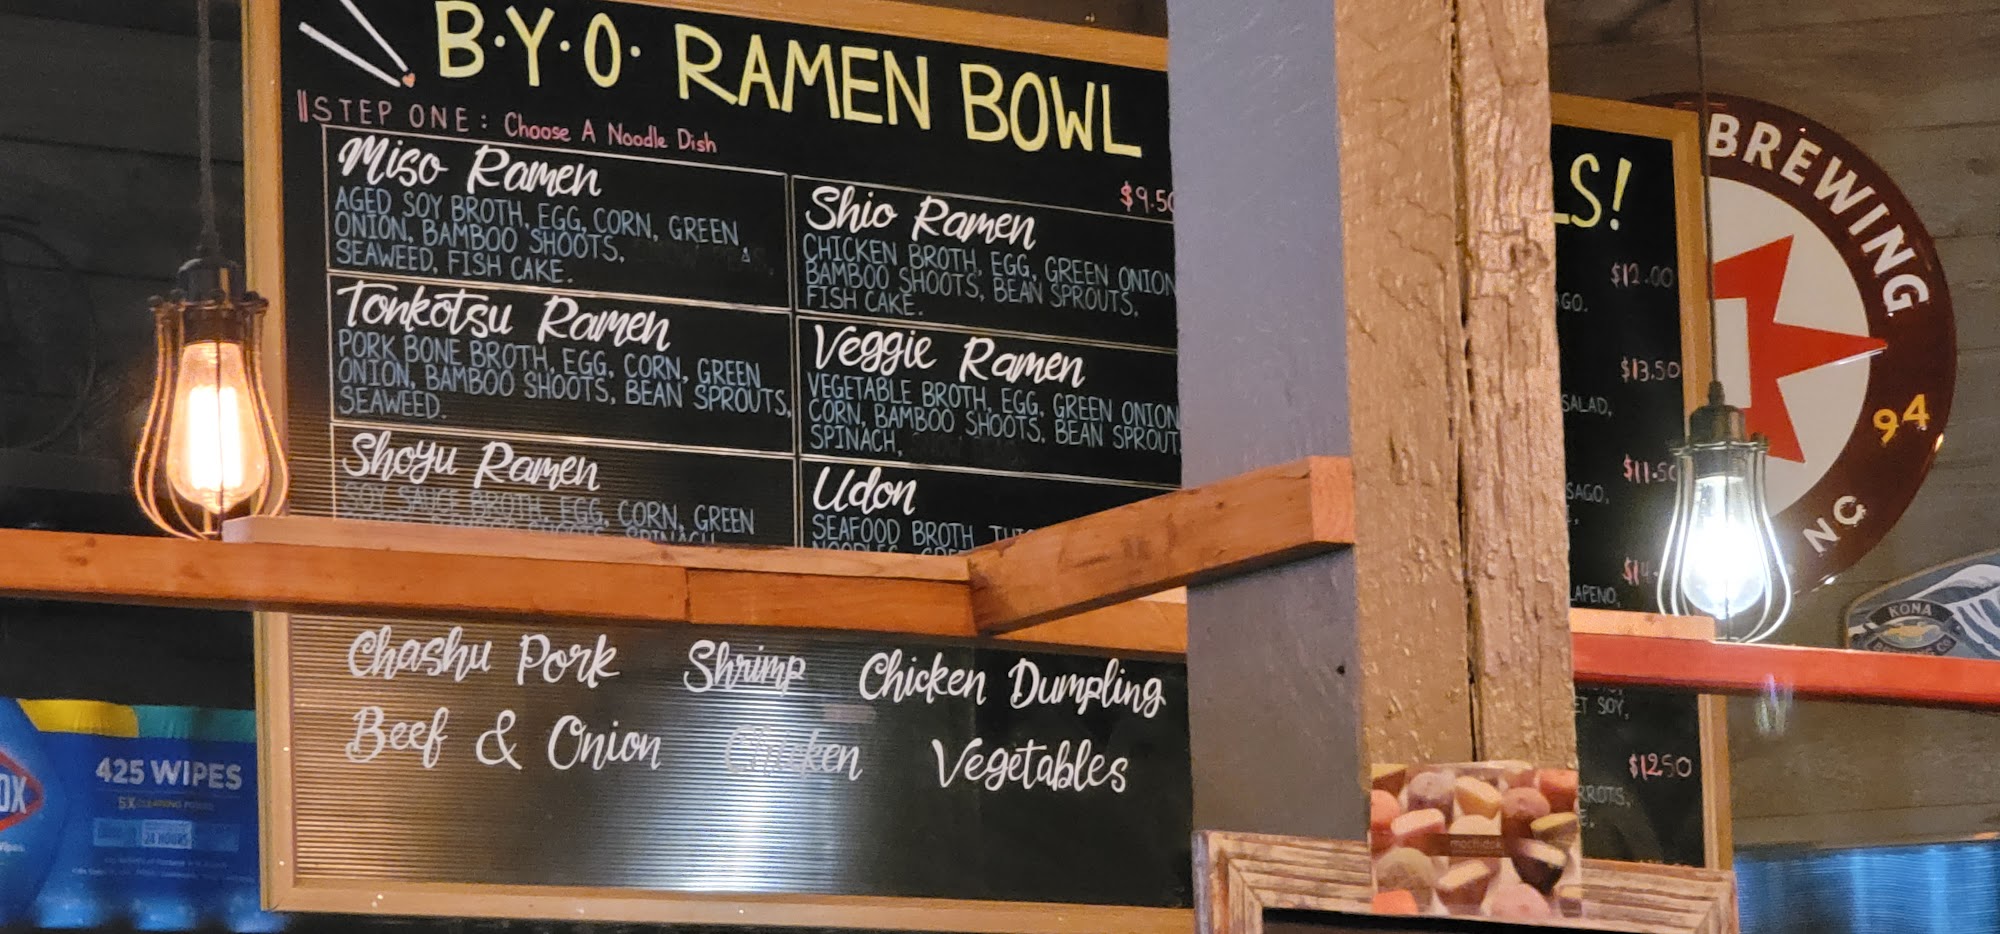 B·Y·O· RAMEN BOWL
STEP ONE: Choose A Noodle Dish
$9.50
Miso Ramen
AGED SOY BROTH, EGG, CORN, GREEN
ONION, BAMBOO SHOOTS,
SEAWEED, FISH CAKE.
Tonkotsu Ramen
PORK BONE BROTH, EGG, CORN, GREEN
ONION, BAMBOO SHOOTS, BEAN SPROUTS,
SEAWEED.
Shoyu Ramen
SOY SAUCE BROTH, EGG, CORN, GREEN
SHOOTS, SPINACH
Shio Ramen
CHICKEN BROTH, EGG, GREEN ONION
BAMBOO SHOOTS, BEAN SPROUTS,
FISH CAKE.
Veggie Ramen
VEGETABLE BROTH, EGG, GREEN ONION
CORN, BAMBOO SHOOTS, BEAN SPROUT
SPINACH,
Udon
SEAFOOD BROTH
NOODLES
Chashu Pork Shrimp Chicken Dumpling
Beef & Onion Chicken Vegetables
LS!
$12.00
AGO.
$13.50
SALAD,
$11.50
SAGO,
$14.
LAPENO,
ET SOY,
$12.50
RROTS,
BREWING
94
NG
KONA
OX
425 WIPES
5X
24 HOURS